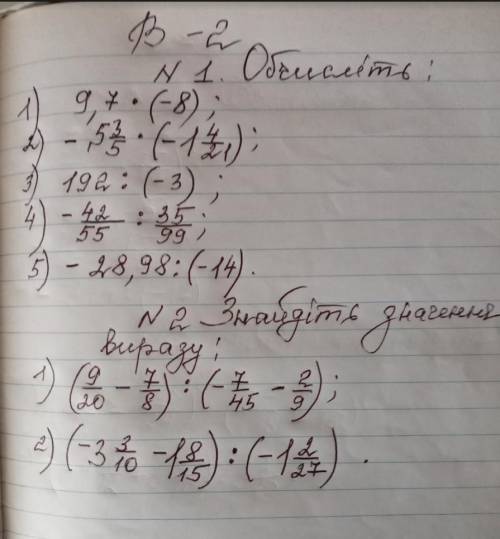 В - 2
N 1. Обчисліть:
1) 9,7 · (-8);
2) - 5 3/5 · (-1 4/21);
3) 192 : (-3);
4) - 42/55 : 35/99;
5) - 28,98 : (-14).
N 2 Знайдіть значення
виразу:
1) (9/20 - 7/8) : (- 7/45 - 2/9);
2) (-3 3/10 - 1 8/15) : (-1 2/27).